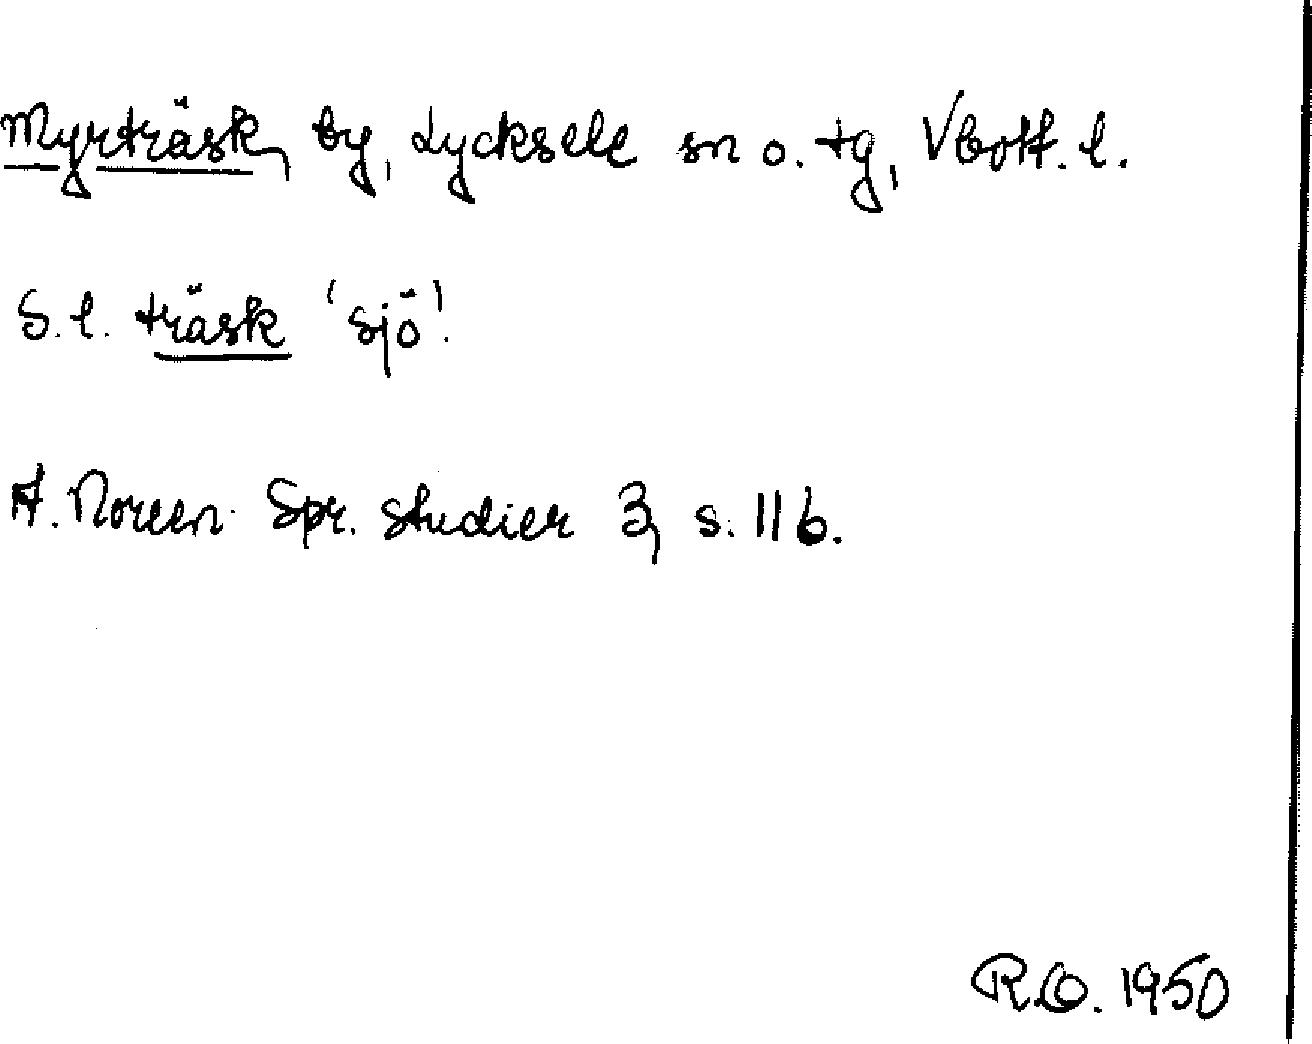 Myrträsk, by, Lycksele sn o. tg, Vbott. l.
S. l. träsk 'sjö'.
A. Noreen Spr. studier 3, s. 116.
R.O. 1950